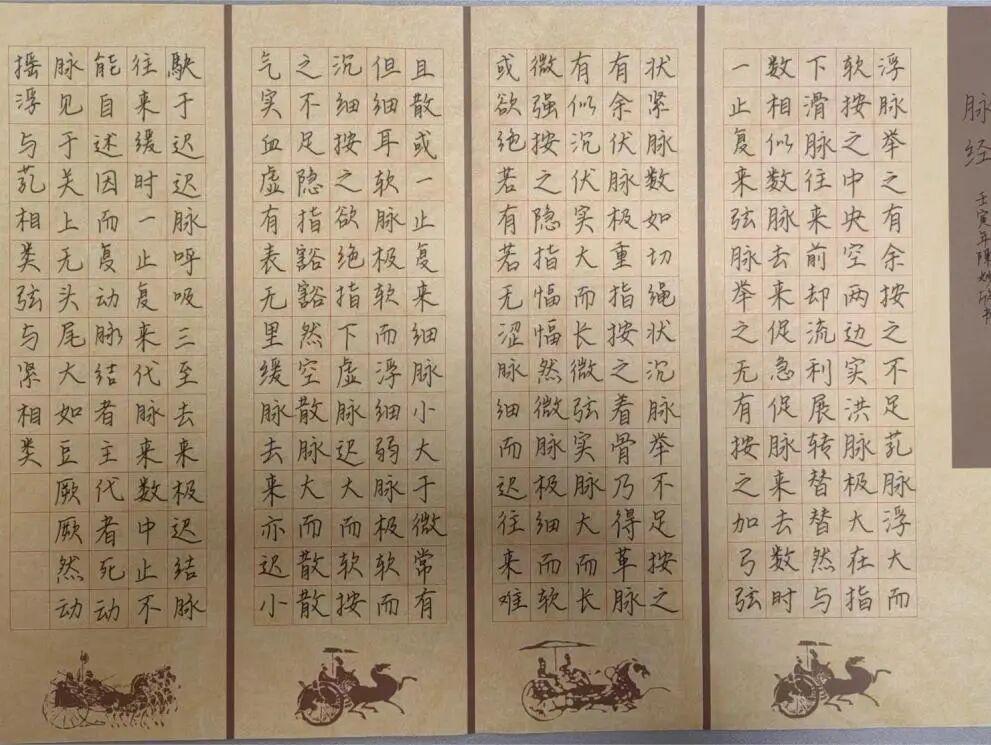 脉经
壬寅年陳妙
浮脉举之有余按之不足芤脉浮大而
软按之中央空两边实洪脉极大在指
下滑脉往来前却流利展转替替然与
数相似数脉去来促急促脉来去数时
一止复来弦脉举之无有按之加弓弦
状紧脉数如切绳状沉脉举不足按之
有余伏脉极重指按之着骨乃得革脉
有似沉伏实大而长微弦实脉大而长
微强按之隐指幅幅然微脉极细而软
或欲绝若有若无涩脉细而迟往来难
且散或一止复来细脉小大于微常有
但细耳软脉极软而浮细弱脉极软而
沉细按之欲绝指下虚脉迟大而软按
之不足隐指豁豁然空散脉大而散散
气实血虚有表无里缓脉去来亦迟小
駃于迟迟脉呼吸三至去来极迟结脉
往来缓时一止复来代脉来数中止不
能自述因而复动脉结者主代者死动
脉见于关上无头尾大如豆厥厥然动
摇浮与芤相类弦与紧相类